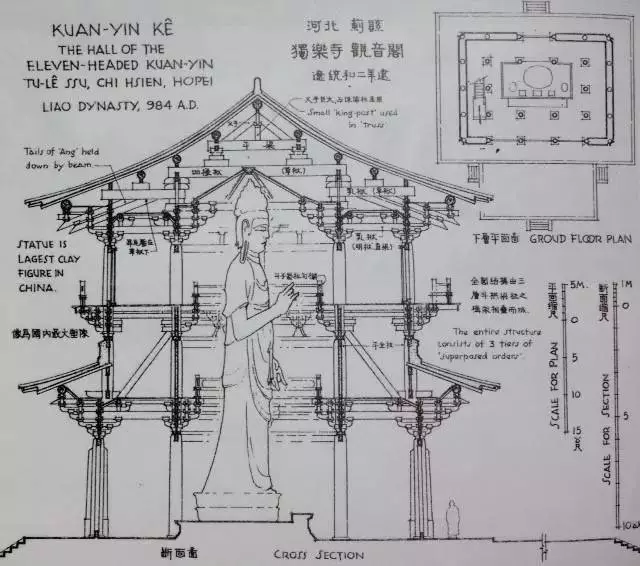 KUAN-YIN KÊ
THE HALL OF THE
ELEVEN-HEADED KUAN-YIN
TU-LÊ SSU, CHI HSIEN, HOPEI
LIAO DYNASTY, 984 A.D.
河北 薊縣
獨樂寺觀音閣
遼統和二年建
Small "king-post" used
in "truss"
Tails of 'Ang' held
down by beam
平梁
四椽栿
(草栿)
乳栿 (草栿)
乳栿
STATUE IS
LAGEST CLAY
FIGURE IN
CHINA.
像為國內最大塑像
The entire structure
consists of 3 tiers of
"superposed orders".
下層平面圖 GROUD FLOOR PLAN
平面尺
5M.
0
5
10
15
SCALE FOR PLAN
斷面尺
1M
0
5
10
SCALE FOR SECTION
斷面圖 CROSS SECTION